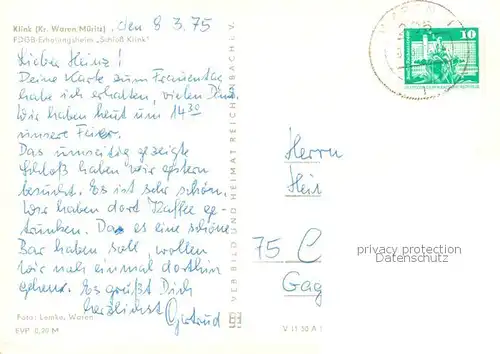 Klink (Kr. Waren/Müritz)
, den 8 3. 75
FDGB-Erholungsheim „Schloß Klink"
Lieber Heinz!
Deine Karte zum Frauentag
habe ich erhalten, vielen Dank.
Wir haben heut um 14 30
unsere Feier.
Das umseitig gezeigte
Schloß haben wir gestern
besucht. Es ist sehr schön.
Wir haben dort Kaffee ge-
trunken. Da es eine schöne
Bar haben soll, wollen
wir noch einmal dorthin
gehen. Es grüßt Dich
herzlichst
Gertrud
Foto: Lemke, Waren
EVP 0,20 M
VEB BILD UND HEIMAT REICHENBACH I. V.
V 11 50 A 1
WAREN
10
Herrn
Hei
75 C
Gag
privacy protection
Datenschutz